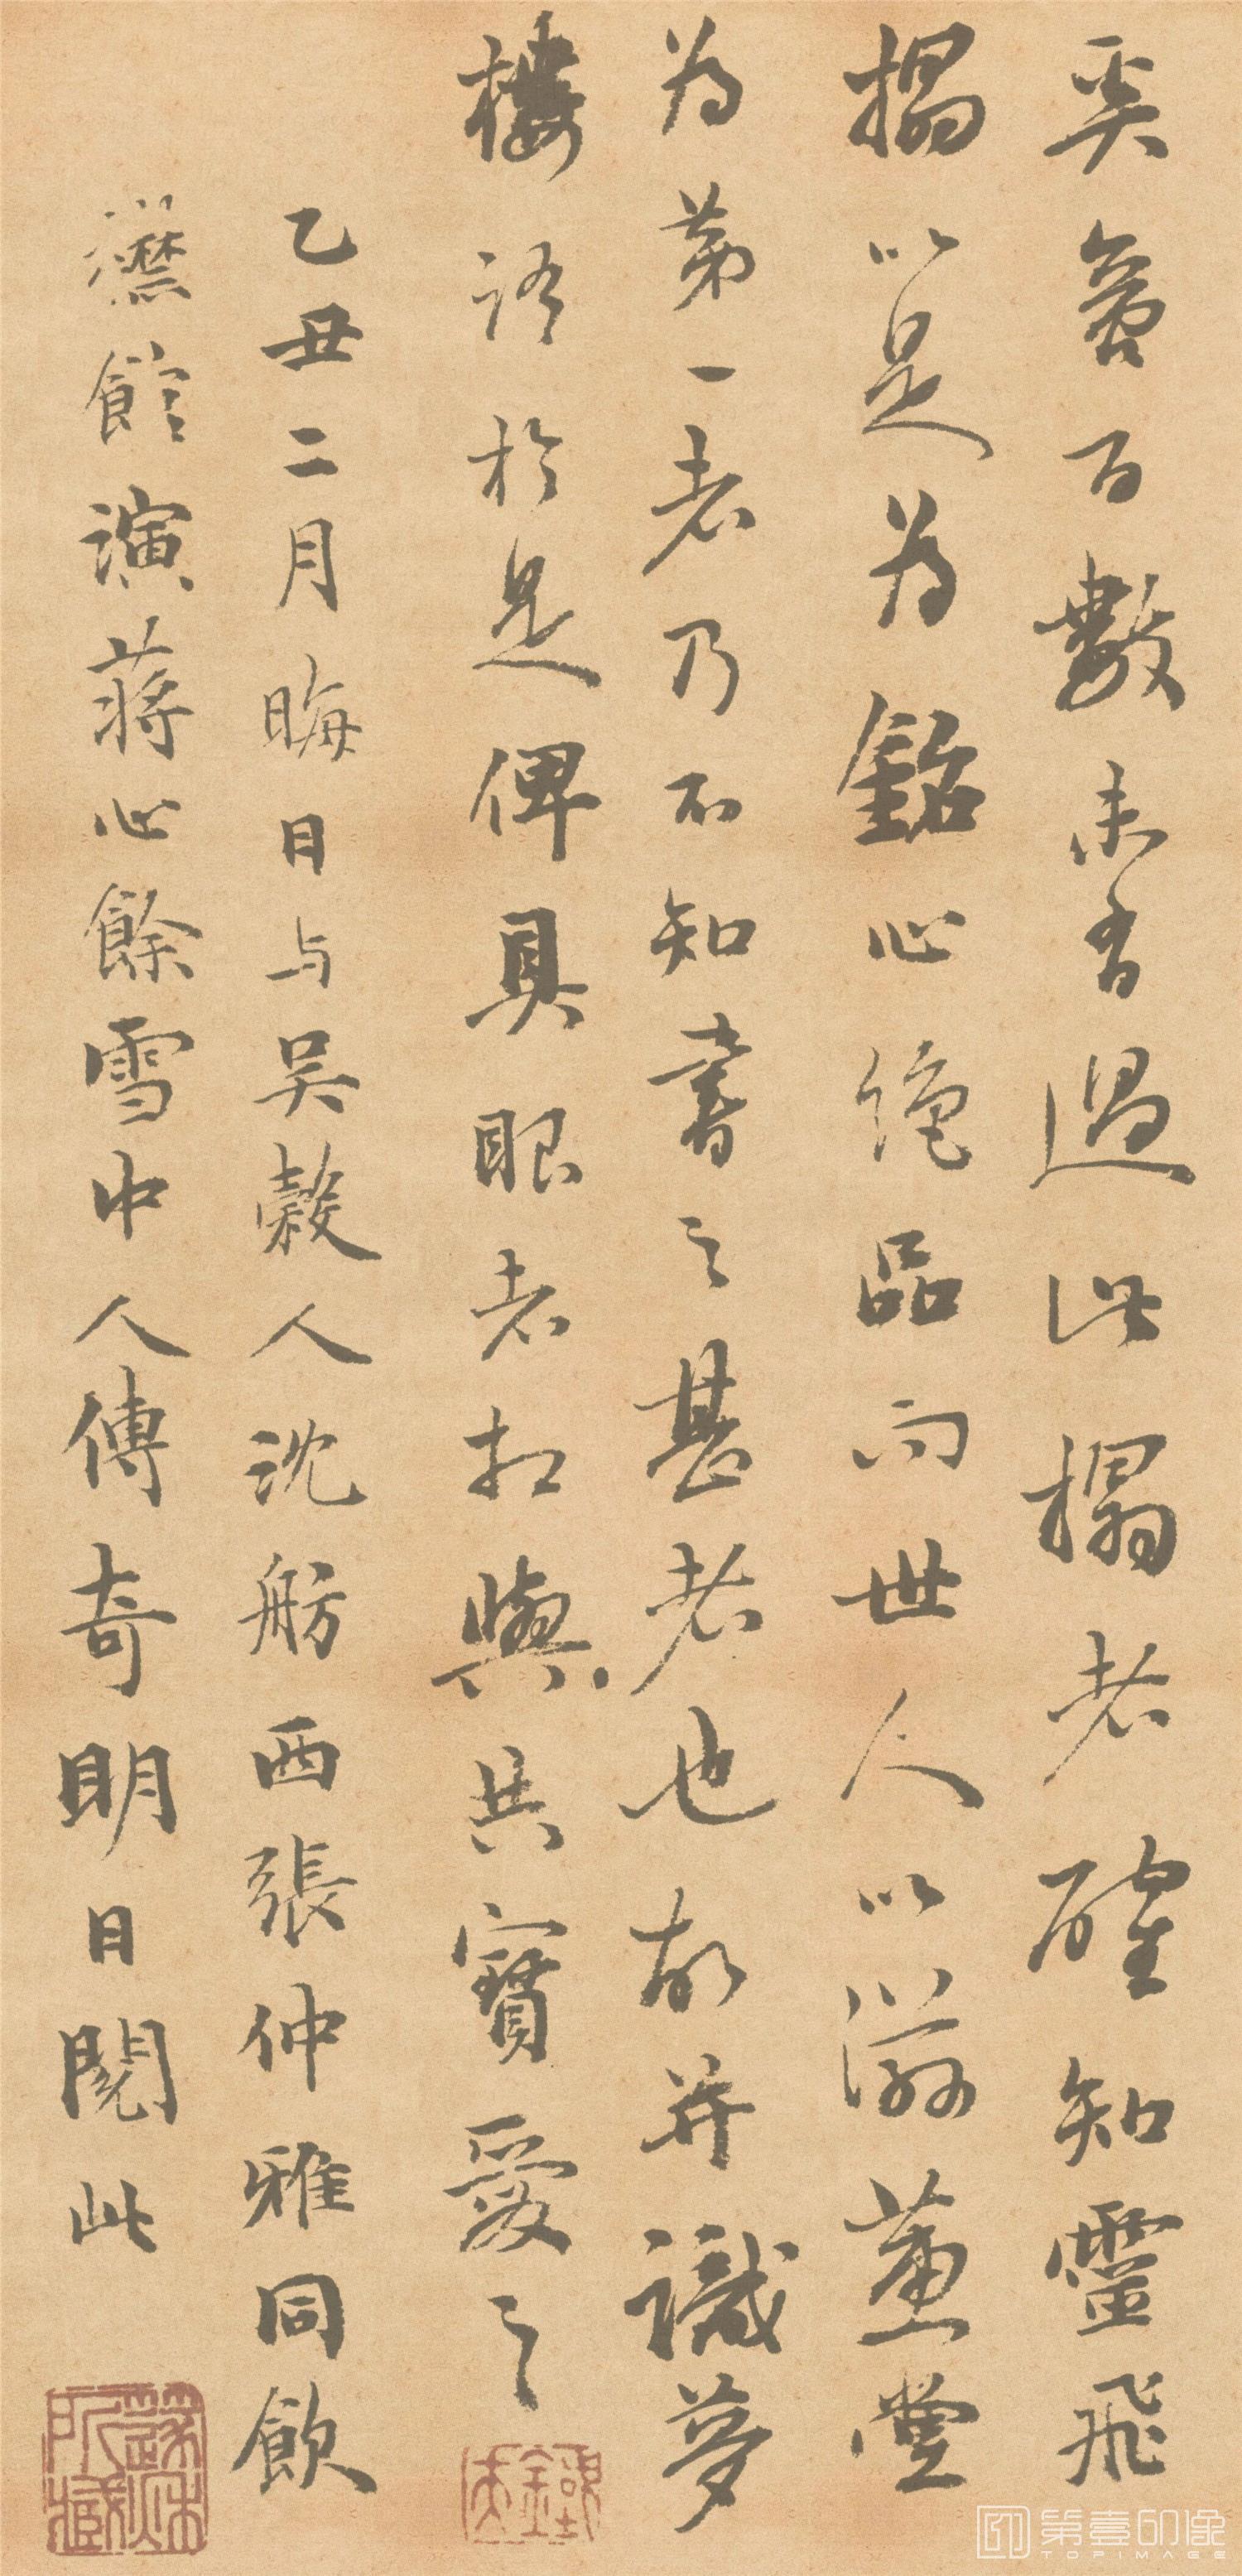 奚啻百數未有過此搨者確知靈飛
搨以是為銘心絕品而世人以滋蕙堂
為第一者乃不知書之甚者也故并識夢
樓語於是俾具眼者相與共寶愛之
乙丑二月晦日与吳穀人沈舫西張仲雅同飲
館演蔣心餘雪中人傳奇明日閱此
所藏
第壹印象
TOPIMAGE